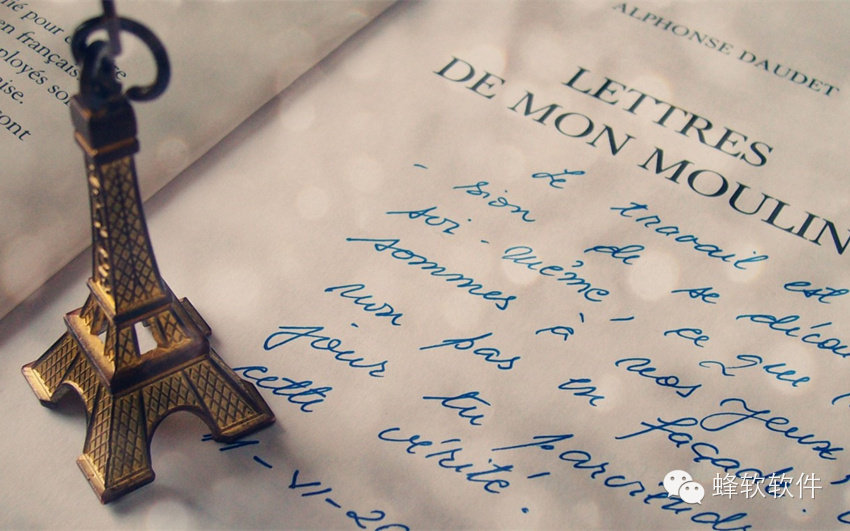 né pour
en français
ployés so
aise.
cont
ALPHONSE DAUDET
LETTRES
DE MON MOULIN
Le travail est
- sion de se décou
soi-même, ce que
sommes à nos yeux,
non pas en façad
jour tu parcritud
cette vérité.
-VI-20
蜂软软件